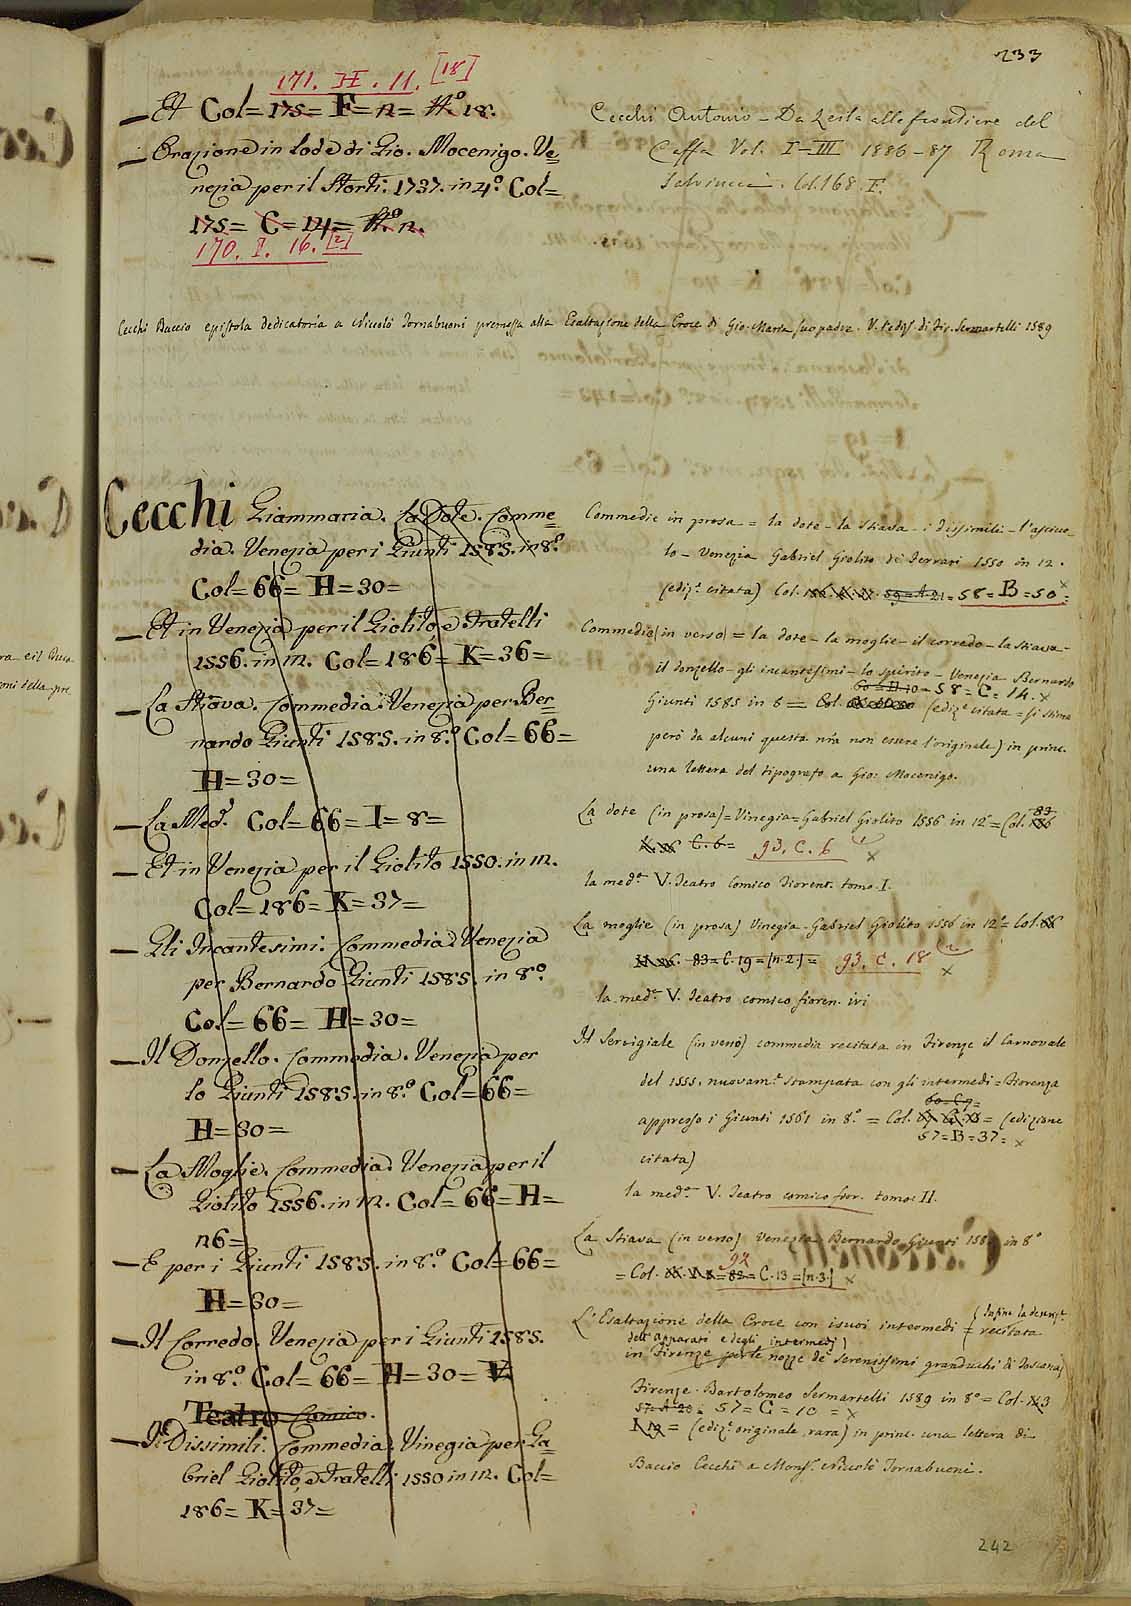 233
171. H. 11. [18]
— Et Col= 175= F= 12= N.º 18.
— Orazione in lode di Gio. Mocenigo. Ve=
nezia per il Storti. 1737. in 4.º Col=
175= C= 14= N.º 12.
170. I. 16. [2]
Cecchi Antonio — Da Zeila alle frontiere del
Caffa Vol. I—III 1886-87 Roma
Col. 168. F.
Cecchi Baccio epistola dedicatoria a Niccolò Tornabuoni premessa alla Esaltazione della Croce di Gio. Maria suo padre. V. l'ediz. di Fir. Sermartelli 1589
Cecchi Giammaria. La Dote. Comme=
dia. Venezia per i Giunti 1585. in 8.º
Col= 66= H= 30=
— Et in Venezia per il Giolito, e Fratelli
1556. in 12. Col= 186= K= 36=
— La Stiava. Commedia. Venezia per Ber=
nardo Giunti 1585. in 8.º Col= 66=
H= 30=
— La Med.ª Col= 66= I= 8=
— Et in Venezia per il Giolito 1550. in 12.
Col= 186= K= 37=
— Gli Incantesimi. Commedia. Venezia
per Bernardo Giunti 1585. in 8.º
Col= 66= H= 30=
— Il Donzello. Commedia. Venezia per
lo Giunti 1585. in 8.º Col= 66=
H= 30=
— La Moglie. Commedia. Venezia per il
Giolito 1556. in 12. Col= 66= H=
26=
— E per i Giunti 1585. in 8.º Col= 66=
H= 30=
— Il Corredo. Venezia per i Giunti 1585.
in 8.º Col= 66= H= 30= V.
Teatro Comico.
— I Dissimili. Commedia. Vinegia per Ga=
briel Giolito, e Fratelli 1550 in 12. Col=
186= K= 37=
Commedie in prosa = la dote - la stiava - i dissimili - l'assiuo_
lo - Venezia Gabriel Giolito de Ferrari 1550 in 12.
(ediz.e citata) Col. 186. K. 37. 59= A 21= 58= B= 50=
Commedie (in verso) = la dote - la moglie - il corredo - la stiava -
il donzello - gli incantesimi - lo spirito - Venezia Bernardo
60= D 10= 58= C= 14. x
Giunti 1585 in 8 = Col. (ediz.e citata = si stima
però da alcuni questa nr̃a non essere l'originale) in princ.
una lettera del tipografo a Gio: Mocenigo.
La dote (in prosa) = Vinegia = Gabriel Giolito 1556 in 12º = Col. 83
C. 6= 93. C. 6 x
la med.ª V. Teatro Comico Fiorent. tomo I.
La moglie (in prosa) Vinegia. Gabriel Giolito 1556 in 12º = Col.
83= C. 19= [n. 2.] = 93. C. 18 x
la med.ª V. Teatro comico fioren. ivi
Il Servigiale (in verso) commedia recitata in Firenze il Carnovale
del 1555. nuovam.e stampata con gli intermedi = Fiorenza
60= C 9=
appresso i Giunti 1561 in 8.º = Col. = (edizione
57= B= 37= x
citata)
la med.ª V. Teatro comico fior. tomo II.
La Stiava (in verso) Venezia Bernardo Giunti 158 in 8º
92
= Col. = 83= C. 13= [n. 3.] x
L'Esaltazione della Croce con i suoi intermedi = recitata
(Infine la descriz.e
dell'apparati e degli intermedj)
in Firenze per le nozze de' serenissimi granduchi di Toscana)
Firenze. Bartolomeo Sermartelli 1589 in 8º = Col.
57= A 20= 57= C= 10 = x
I 19 = (ediz.e originale, rara) in princ. una lettera di
Baccio Cecchi a Mons.r Niccolò Tornabuoni.
242